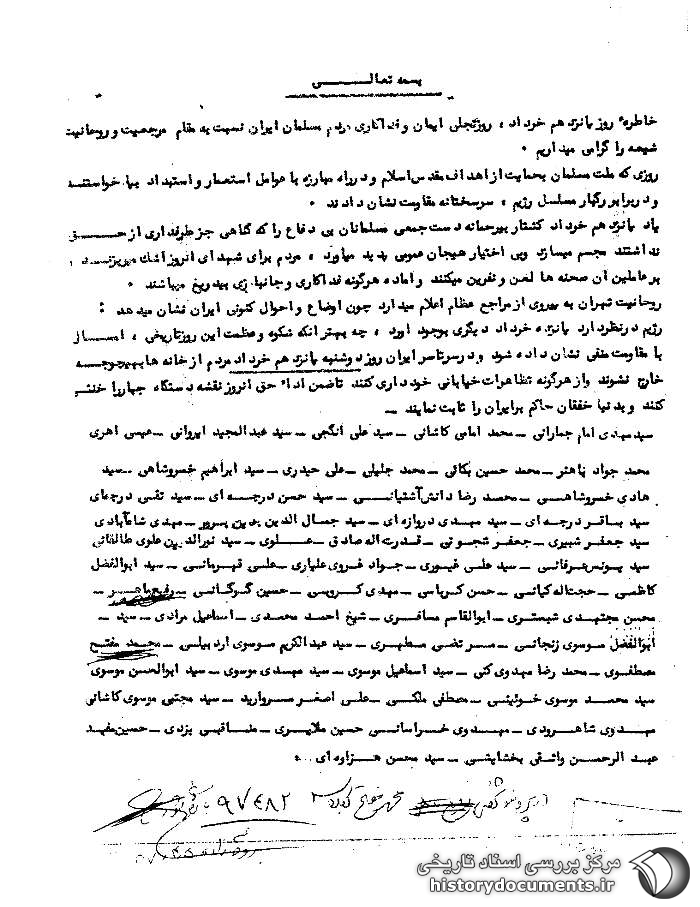 بسمه تعالـــــی
خاطرهٔ روز پانزدهم خرداد ، روز تجلی ایمان و فداکاری مردم مسلمان ایران نسبت به مقام مرجعیت و روحانیت
شیعه را گرامی میداریم ۰
روزی که ملت مسلمان بحمایت از اهداف مقدس اسلام و در راه مبارزه با عوامل استعمار و استبداد بپا خواستنـد
و در برابر رگبار مسلسل رژیم ، سرسختانه مقاومت نشان دادند ۰
یاد پانزدهم خرداد کشتار بیرحمانه دست جمعی مسلمانان بی دفاع را که گاهی جز طرفداری از حـــق
نداشتند مجسم میسازد وبی اختیار هیجان عمومی پدید میاورد ، مردم برای شهدای انروز اشك میریزنـــد ،
بر عاملین ان صحنه ها لعن و نفرین میکنند و اماده هرگونه فداکاری و جانبازی بیدریغ میباشند ۰
روحانیت تهران به پیروی از مراجع عظام اعلام میدارد چون اوضاع و احوال کنونی ایران نشان میدهد :
رژیم در نظر دارد پانزده خرداد دیگری بوجود اورد ، چه بهتر انکه شکوه و عظمت این روز تاریخی ، امســال
با مقاومت منفی نشان داده شود و در سرتاسر ایران روز دوشنبه پانزدهم خرداد مردم از خانه ها بهیچوجـــه
خارج نشوند و از هرگونه تظاهرات خیابانی خودداری کنند تا ضمن اداء حق انروز نقشه دستگاه جبار را خنثی
کنند و بدنیا خفقان حاکم بر ایران را ثابت نمایند ـــ
سید مهدی امام جمارانی ــ محمد امامی کاشانی ــ سید علی انگجی ــ سید عبدالمجید ایروانی ــ عیسی اهری
محمد جواد باهنر ــ محمد حسین بکائی ــ محمد جلیلی ــ علی حیدری ــ سید ابراهیم خسروشاهی ــ سید
هادی خسروشاهـــی ــ محمد رضا دانش آشتیانـــی ــ سید حسن درچـــه ای ــ سید تقی درچه‌ای
سید بـــاقر درچه ای ــ سید مهـــدی دروازه ای ــ سید جمال الدین دین پـــرور ــ مهـدی شاه‌آبادی
سید جعفـر شبیری ــ جعفـر شجونـی ــ قدرت اله صادقی ــ علـــوی ــ سید نورالدین علوی طالقانی
سید یونـس عرفانـی ــ سید علـی غیـوری ــ جواد فروی علیاری ــ علـی قهرمانـی ــ سید ابوالفضل
کاظمی ــ حجت‌اله کیائـی ــ حسن کرباسـی ــ مهـدی کروبـی ــ حسین گرگـانـی ــ
محسن مجتهدی شبستری ــ ابوالقاسم مسافـری ــ شیخ احمد محمدی ــ اسماعیل مرادی ــ سید ــ
ابوالفضل موسوی زنجانـی ــ مــرتضی مـطهری ــ سید عبدالکریم موسوی اردبیلـی ــ محمد مفتح
مصطفوی ــ محمد رضا مهدوی کنی ــ سید اسماعیل موسوی ــ سید مهدی موسوی ــ سید ابوالحسن موسوی
سید محمـد موسوی خوئینـی ــ مصطفی ملکـی ــ علـی اصغر مروارید ــ سید مجتبی موسوی کاشانی
مهدوی شاهـرودی ــ مهدوی خراسانـی حسین ملایـری ــ یزدی ــ حسین مفید
عبد الرحمـن واثقـی بخشایشی ــ سید محسن هزاوه ای ۰۰۰
۹۷۴۸۲
مرکز بررسی اسناد تاریخی
historydocuments.ir